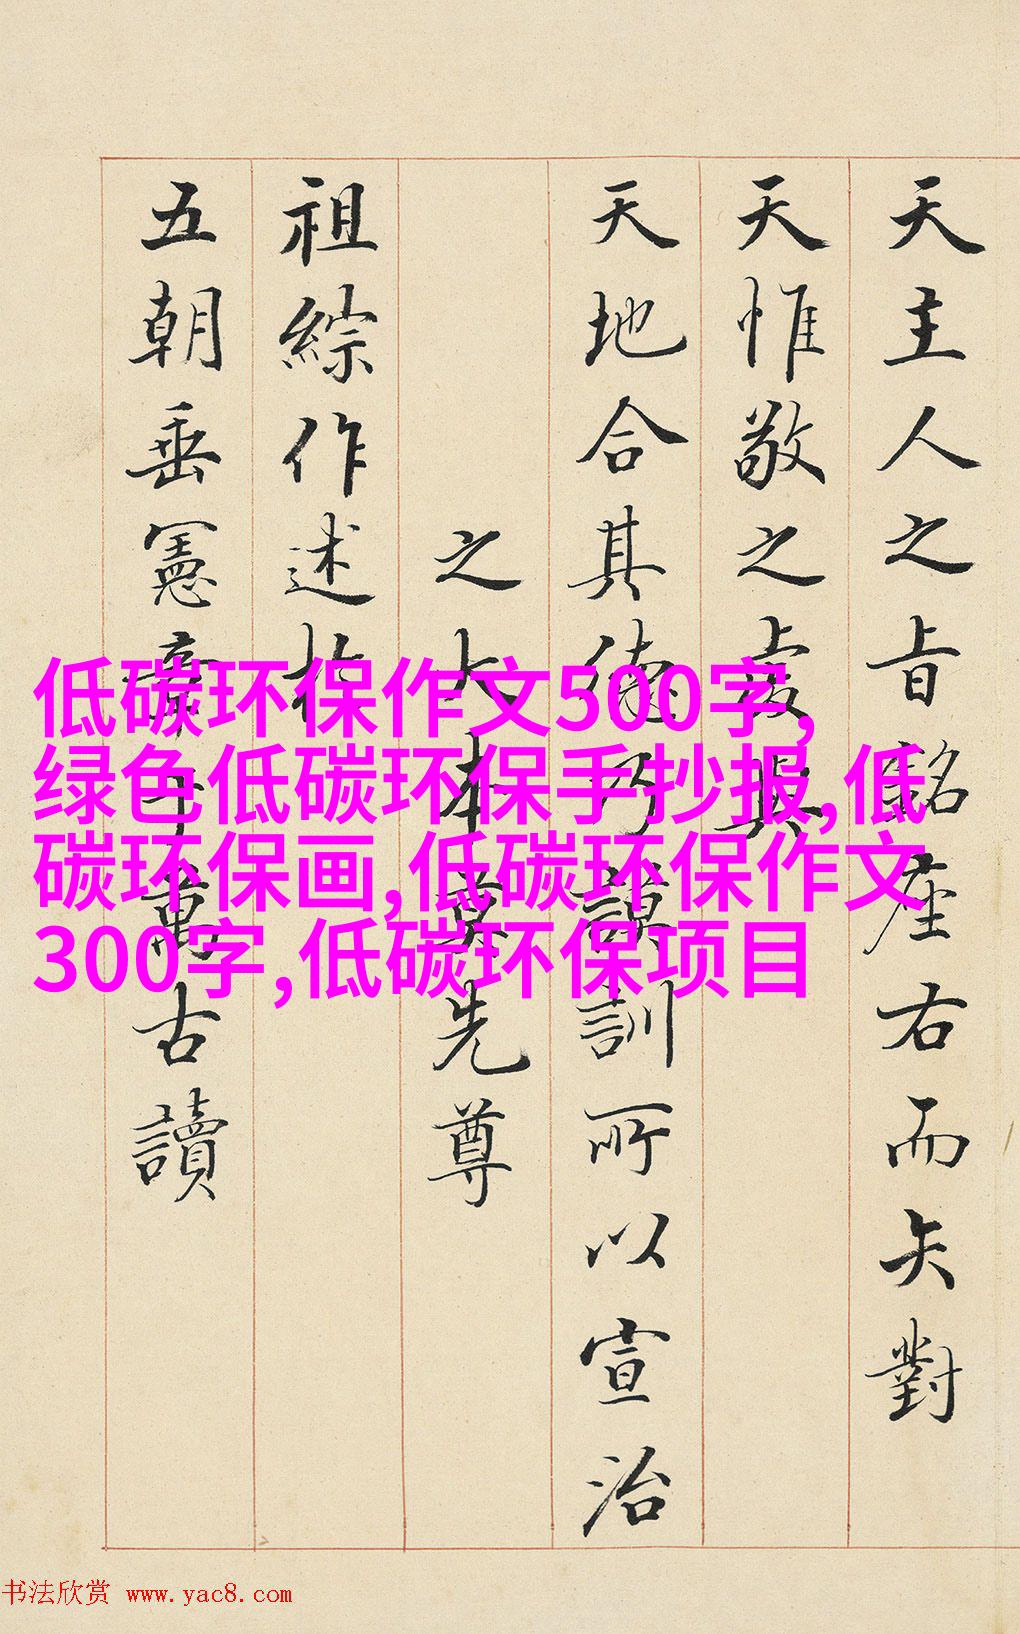 天主人之㫖銘座右而矢對
天惟敬之處其
天地合其德乃謨訓所以宣治
之大本莫先尊
祖綜作述於
五朝垂憲章千萬古讀
低碳环保作文500字,
绿色低碳环保手抄报,低
碳环保画,低碳环保作文
300字,低碳环保项目
书法欣赏 www.yac8.com